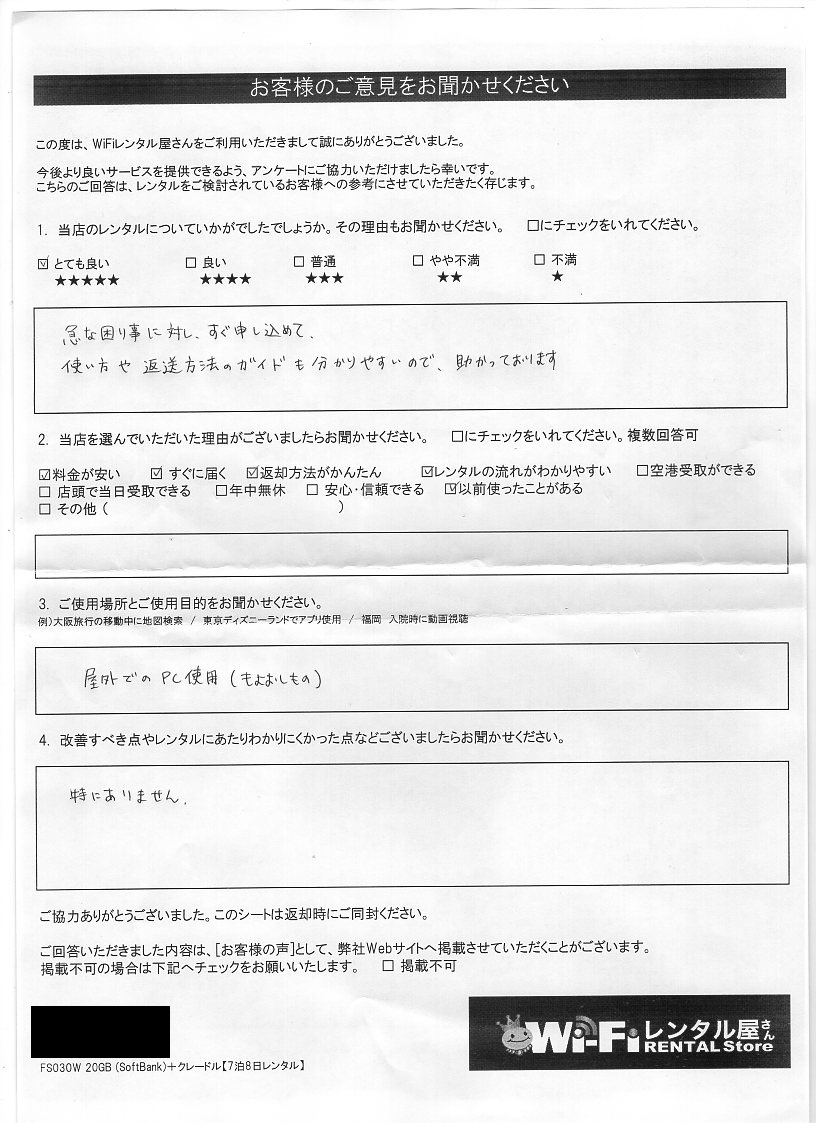 お客様のご意見をお聞かせください
この度は、WiFiレンタル屋さんをご利用いただきまして誠にありがとうございました。
今後より良いサービスを提供できるよう、アンケートにご協力いただけましたら幸いです。
こちらのご回答は、レンタルをご検討されているお客様への参考にさせていただきたく存じます。
1. 当店のレンタルについていかがでしたでしょうか。その理由もお聞かせください。 □にチェックをいれてください。
☑ とても良い □ 良い □ 普通 □ やや不満 □ 不満
★★★★★ ★★★★ ★★★ ★★ ★
急な困り事に対し、すぐ申し込めて、
使い方や返送方法のガイドも分かりやすいので、助かっております
2. 当店を選んでいただいた理由がございましたらお聞かせください。 □にチェックをいれてください。複数回答可
☑料金が安い ☑ すぐに届く ☑返却方法がかんたん ☑レンタルの流れがわかりやすい □空港受取ができる
□ 店頭で当日受取できる □年中無休 □ 安心・信頼できる ☑以前使ったことがある
□ その他 ( )
3. ご使用場所とご使用目的をお聞かせください。
例)大阪旅行の移動中に地図検索 / 東京ディズニーランドでアプリ使用 / 福岡 入院時に動画視聴
屋外でのPC使用(もよおしもの)
4. 改善すべき点やレンタルにあたりわかりにくかった点などございましたらお聞かせください。
特にありません。
ご協力ありがとうございました。このシートは返却時にご同封ください。
ご回答いただきました内容は、[お客様の声]として、弊社Webサイトへ掲載させていただくことがございます。
掲載不可の場合は下記へチェックをお願いいたします。 □ 掲載不可
Wi-Fiレンタル屋さん
RENTAL Store
FS030W 20GB (SoftBank)+クレードル【7泊8日レンタル】